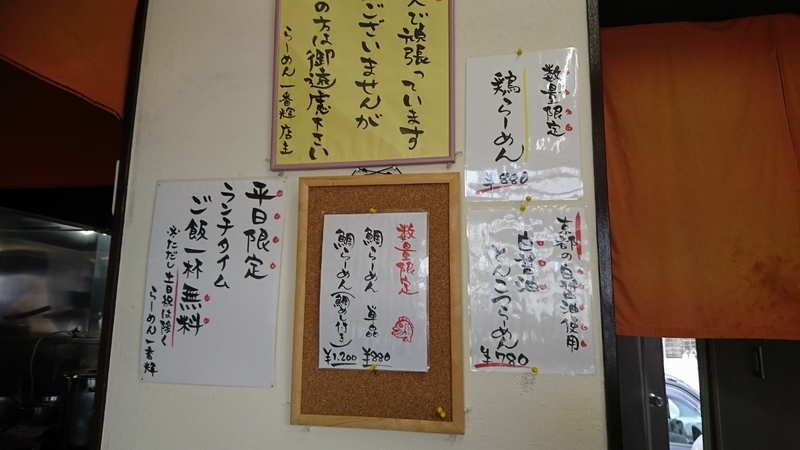 んで頑張っています
ございませんが
の方は御遠慮下さい
らーめん一番輝 店主
数量限定
鶏らーめん
¥880
京都の白醤油使用
白醤油
とんこつらーめん
¥780
数量限定
鯛らーめん 単品
¥880
鯛らーめん(鯛めし付き)
¥1,200
平日限定
ランチタイム
ご飯一杯無料
※ただし土日祝は除く
らーめん一番輝